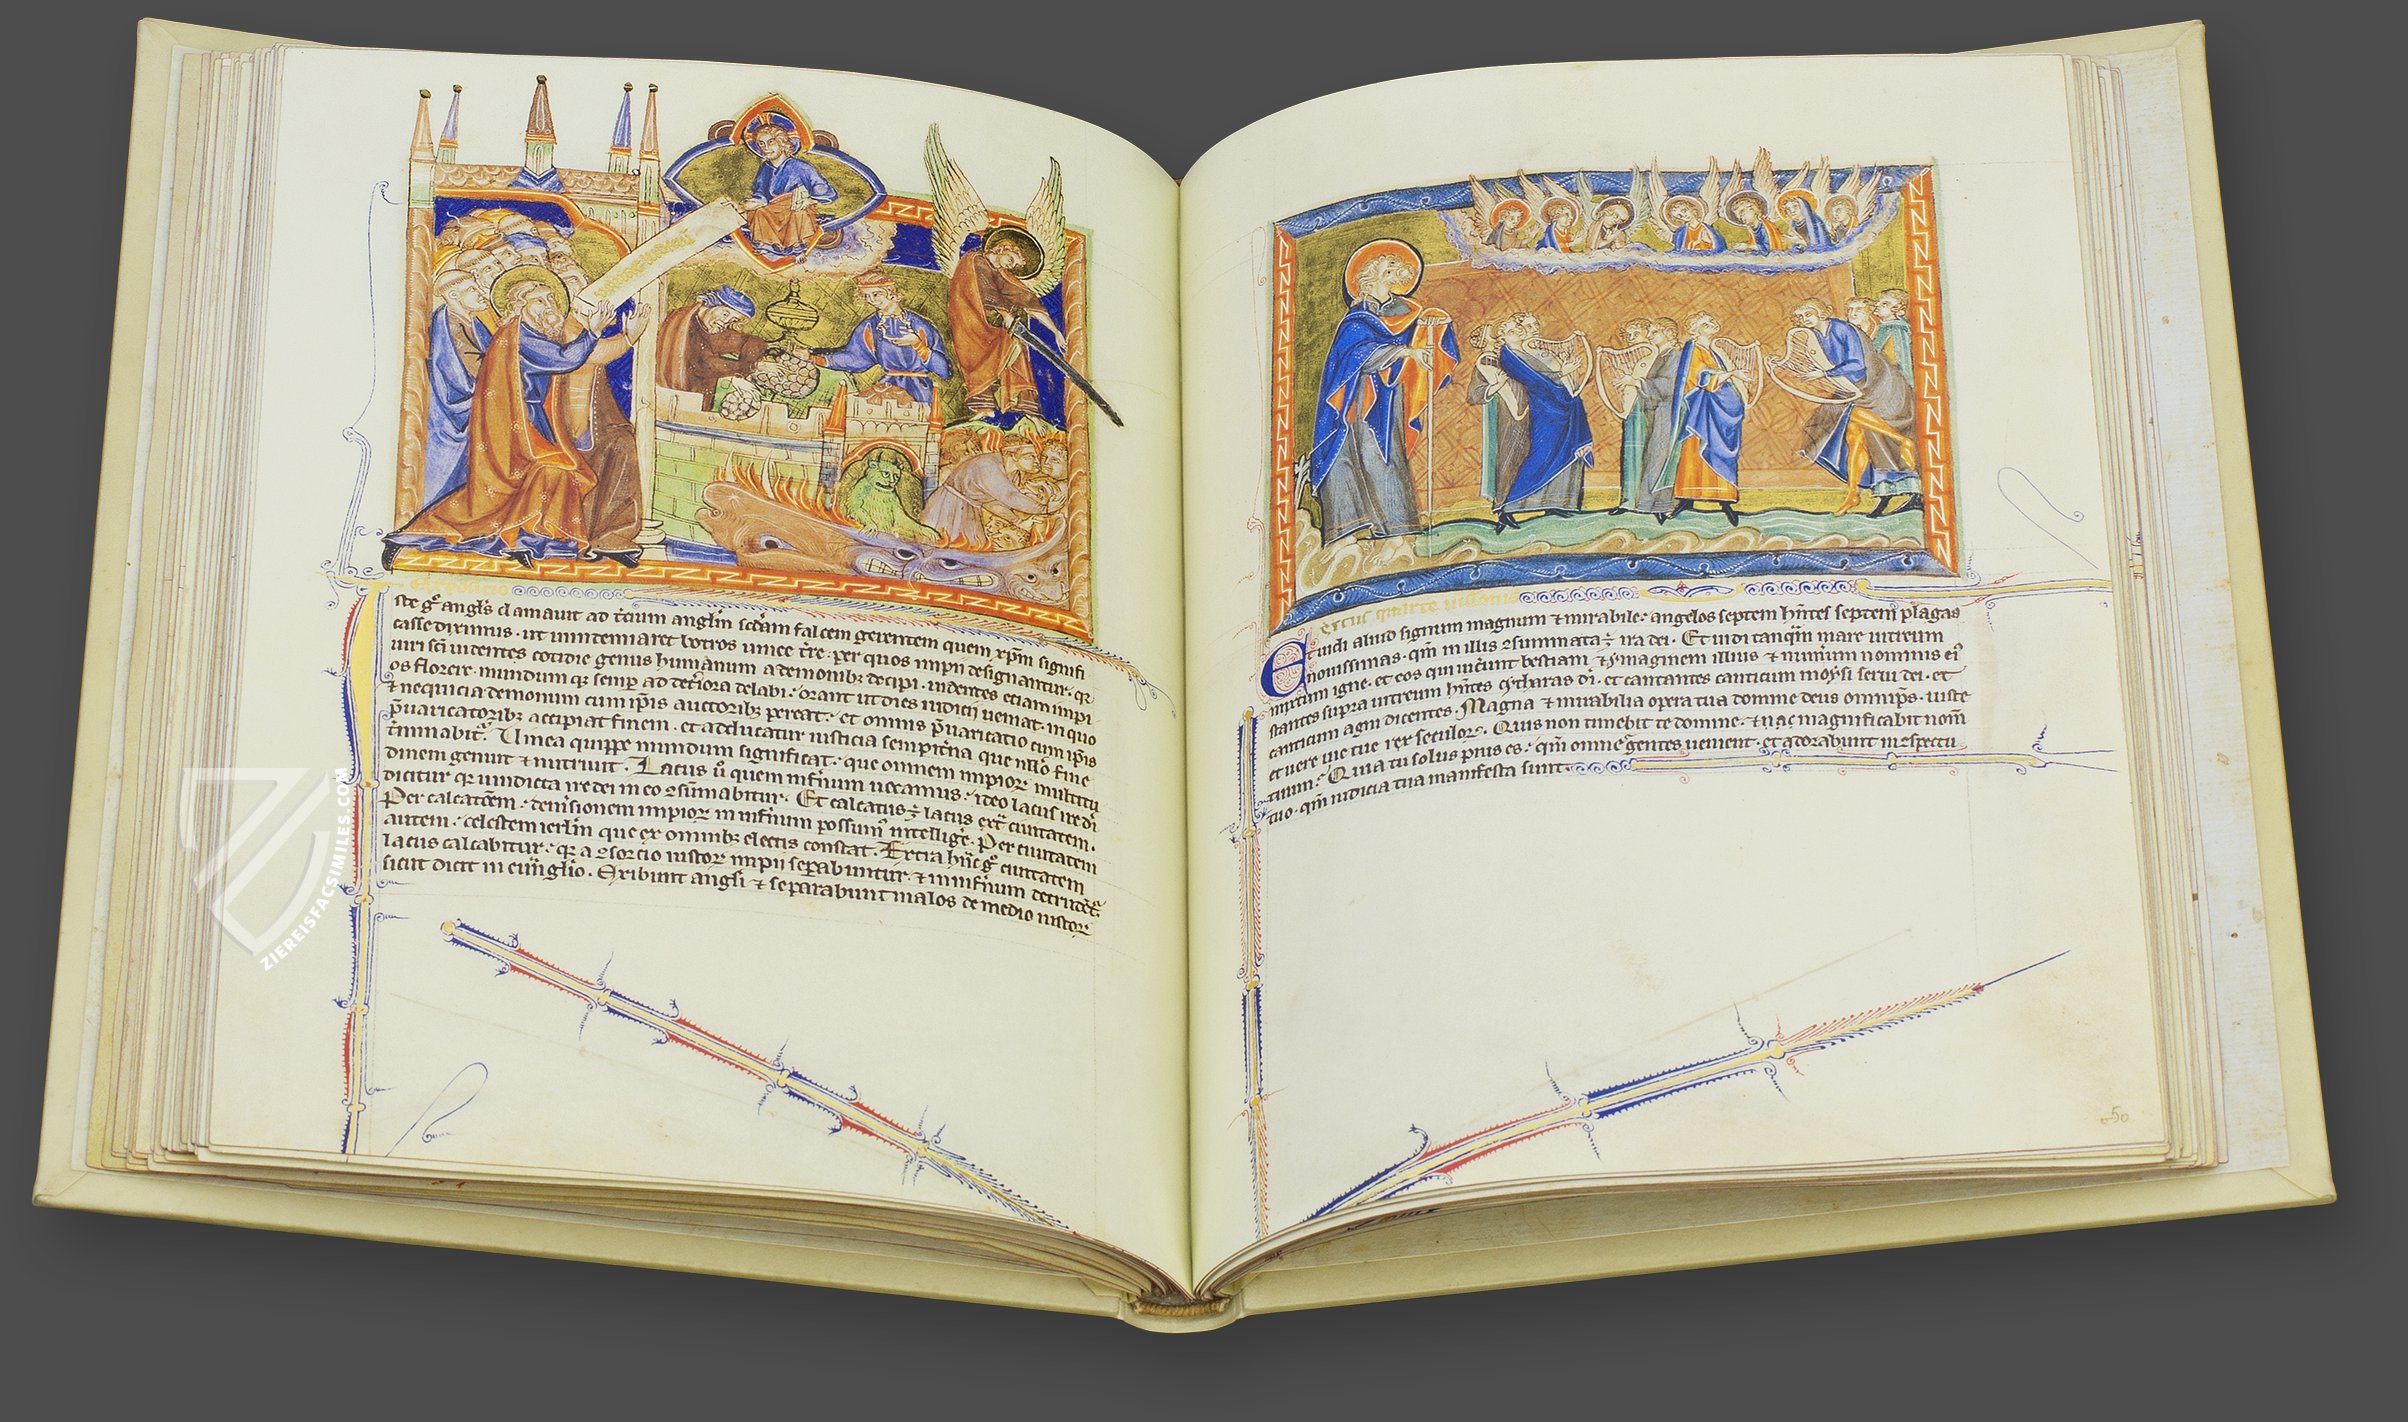 Expositio
Iste gͦ angls clamauit ad tcium anglm scdam falcem gerentem quem xpm signifi
casse diximus · ut uindemiaret botros uinee tre · per quos impii designantur · qr
uiri sci uidentes cotidie genus humanum a demonibꝫ decipi · uidentes etiam impi
os florere · mundum qꝫ semp ad deteriora delabi · orant ut dies iudicii ueniat · in quo
⁊ nequicia demonum cum ipsis auctoribꝫ pereat · et omnis puaricatio cum ipsis
puaricatoribꝫ accipiat finem · et adducatur iusticia sempitna que nllo fine
tminabit · Uinea quippe mundum significat · que omnem impioꝝ multitu
dinem genuit ⁊ nutriuit · Lacus u quem infnum uocamus · ideo lacus ire di
dicitur qr uindicta ire dei in eo ꝯsumabitur · Et calcatus ÷ lacus ext ciuitatem ·
Per calcatoem · demsionem impioꝝ in infnum possumꝰ intellige · Per ciuitatem
autem · celestem ierlm que ex omnibꝫ electis constat · Extra hnc gͦ ciuitatem
lacus calcabitur · qr a ꝯsorcio iustoꝝ impii sepabuntur · ⁊ in infnum detrudet
sicut dicit in euuglio · Exibunt angli ⁊ separabunt malos de medio iustoꝝ
textus quarte uisionis
Et uidi aliud signum magnum ⁊ mirabile · angelos septem hntes septem plagas
nouissimas · qm in illis ꝯsummata ÷ ira dei · Et uidi tanqm mare uitreum
mixtum igne · et eos qui uicunt bestiam ⁊ ymaginem illius ⁊ numum nominis eiꝰ
stantes supra uitreum hntes cytharas di · et cantantes canticum moysi serui dei · et
canticum agni dicentes · Magna ⁊ mirabilia opera tua domine deus omnips · iuste
et uere uie tue rex seculoꝝ · Quis non timebit te domine · ⁊ nac magnificabit nom
tuum · Quia tu solus pius es · qm omne gentes uenient · et adorabunt in ꝯspectu
tuo · qm iudicia tua manifesta sunt ·
50
ZIEREISFACSIMILES.COM